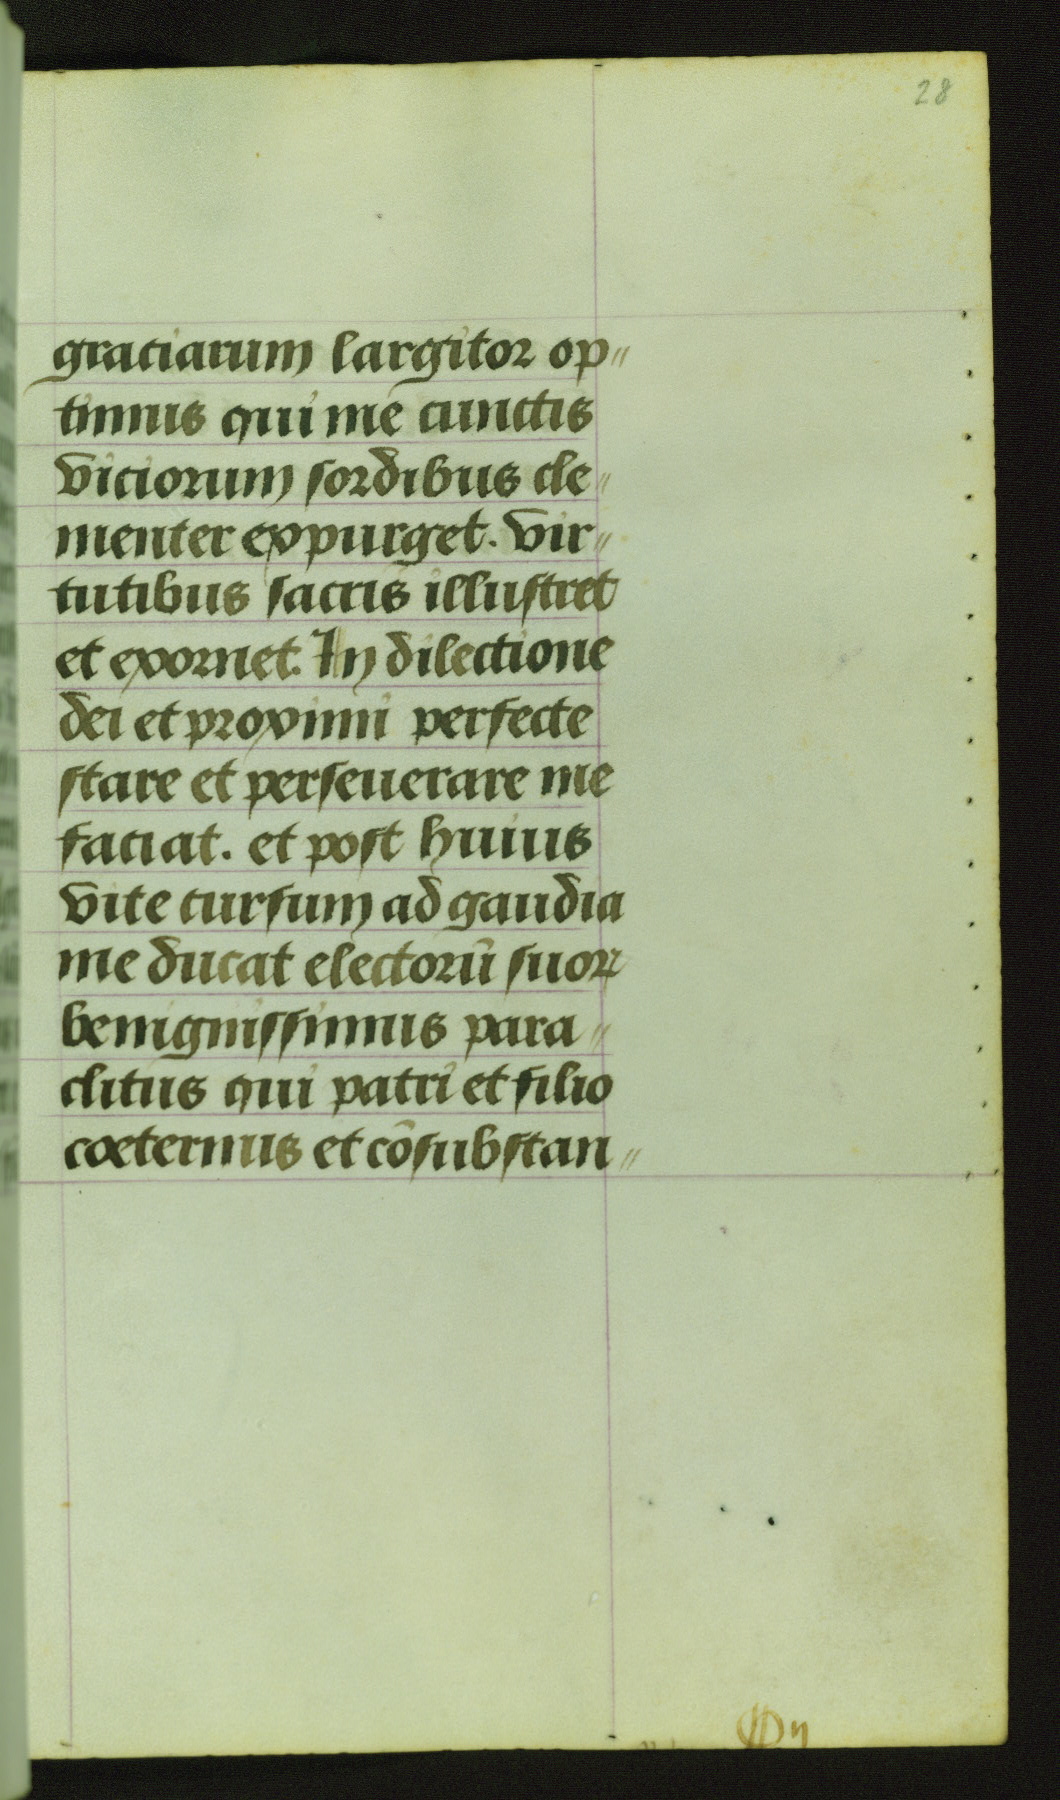 28
graciarum largitor op〃
timus qui me cunctis
viciorum sordibus cle〃
menter expurget. vir〃
tutibus sacris illustret
et exornet. In dilectione
dei et proximi perfecte
stare et perseuerare me
faciat. et post huius
vite cursum ad gaudia
me ducat electorū suoꝝ
benignissimus para〃
clitus qui patri et filio
coeternus et cōsubstan〃